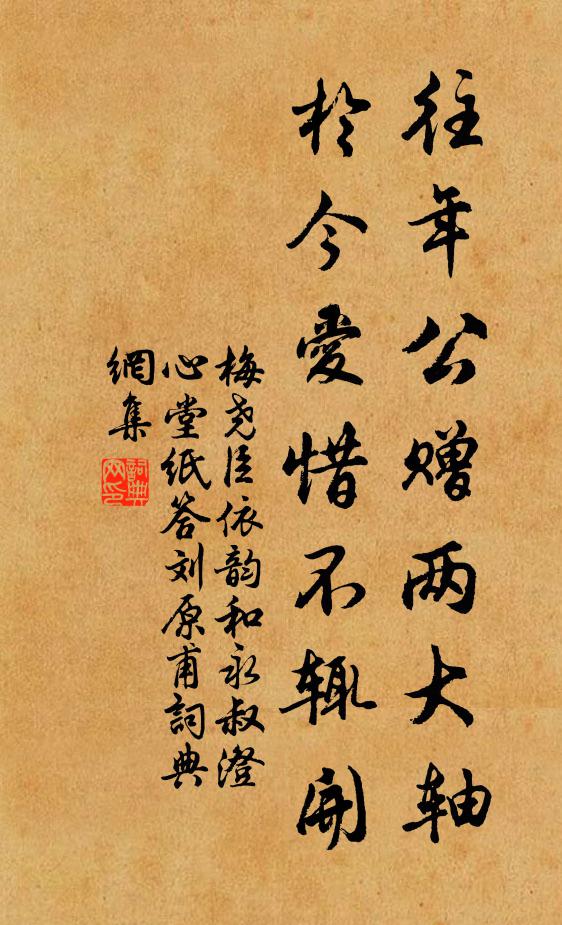 往年公赠两大轴
於今愛惜不辄開
梅尧臣依韵和永叔澄
心堂纸答刘原甫詞典
網集
詞典
网印